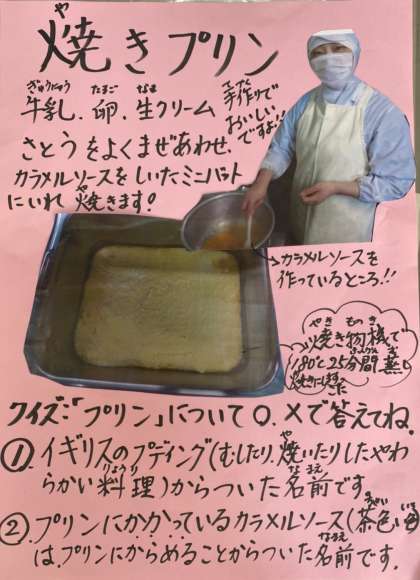 焼きプリン
や
牛乳、卵、生クリーム
ぎゅうにゅう たまご なま
手作りで
てづく
おいしい
ですよ!!
さとうをよくまぜあわせ、
カラメルソースをしいたミニバット
にいれ焼きます!
や
→カラメルソースを
作っているところ!!
やきものき
焼き物機で
180℃25分間蒸し
クイズ:「プリン」について○、×で答えてね。
①イギリスのプディング(むしたり、焼いたりしたやわ
や
らかい料理)からついた名前です。
りょうり なまえ
②プリンにかかっているカラメルソース(茶色い
ちゃいろ
は、プリンにからめることからついた名前です。
なまえ